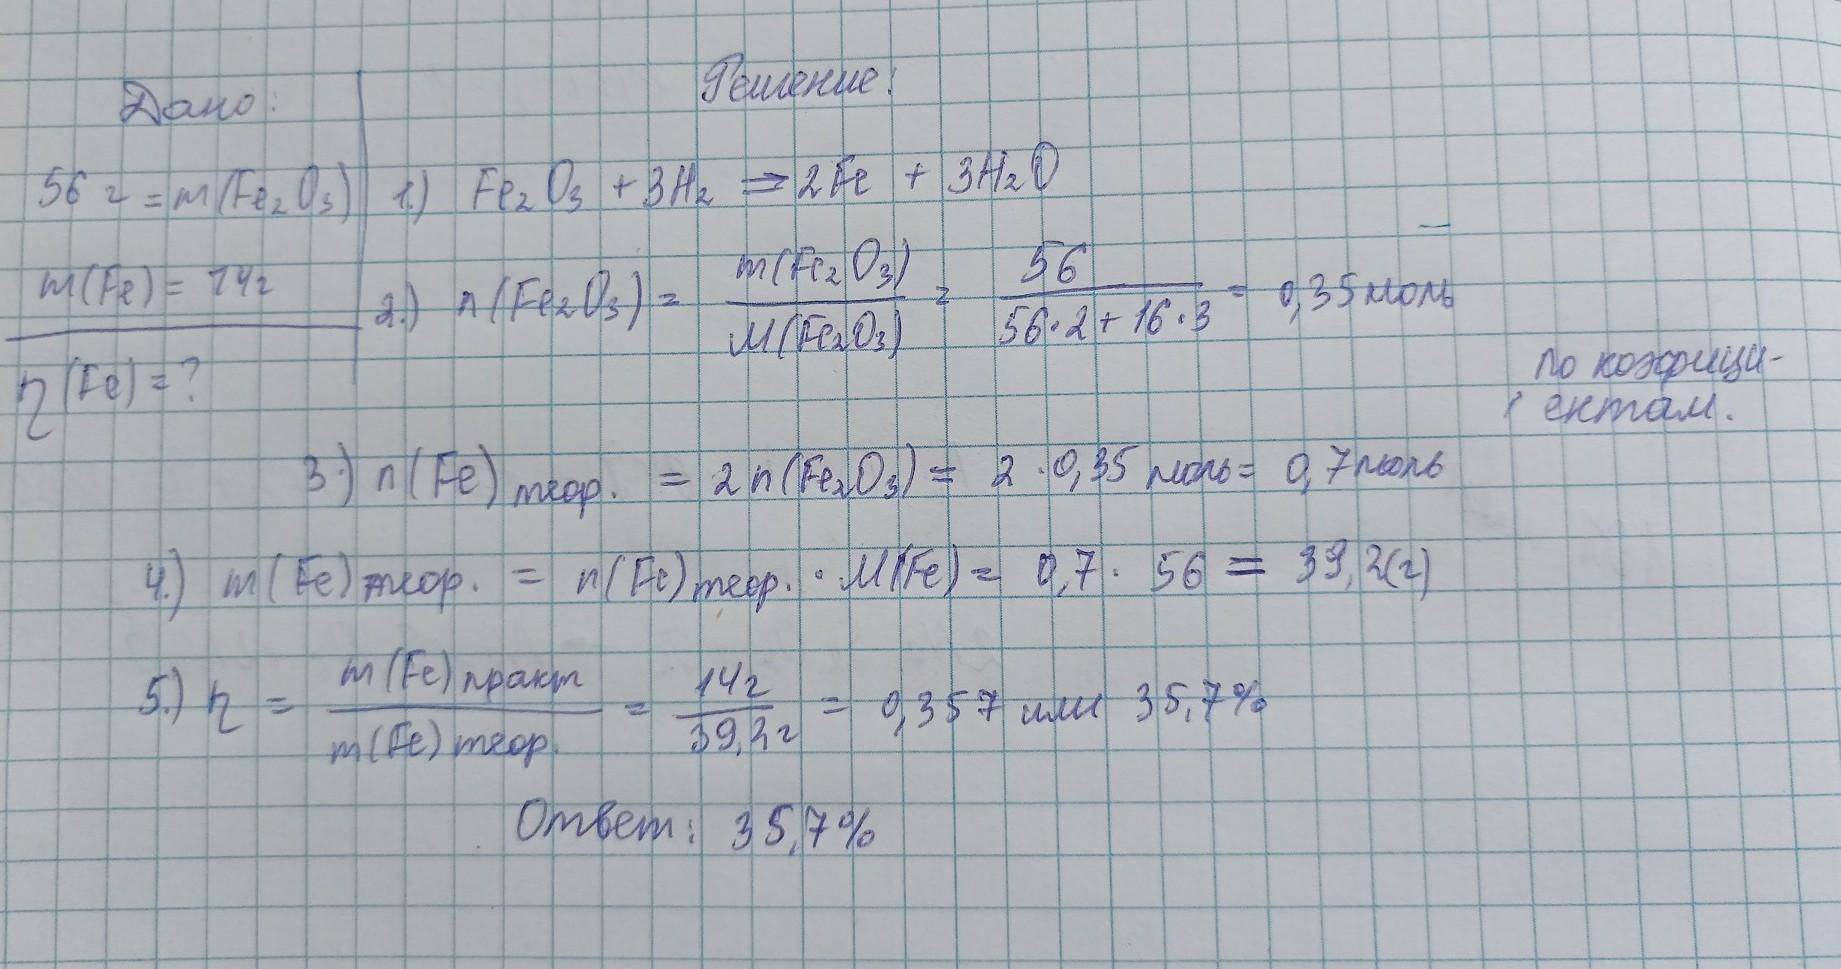 Дано:
Решение:
56 г = m(Fe₂O₃)
1.) Fe₂O₃ + 3H₂ ⇒ 2Fe + 3H₂O
m(Fe) = 14г
2.) n(Fe₂O₃) = m(Fe₂O₃) / M(Fe₂O₃) = 56 / 56·2 + 16·3 = 0,35 моль
η(Fe) = ?
по коэфици-
ентам.
3.) n(Fe) теор. = 2n(Fe₂O₃) = 2 · 0,35 моль = 0,7 моль
4.) m(Fe) теор. = n(Fe) теор. · M(Fe) = 0,7 · 56 = 39,2(г)
5.) η = m(Fe) практ / m(Fe) теор. = 14г / 39,2г = 0,357 или 35,7%
Ответ: 35,7%